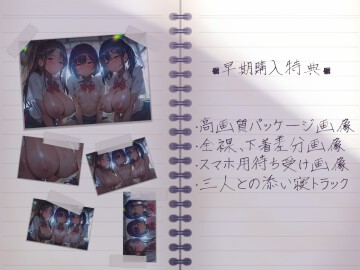 早期購入特典
・高画質パッケージ画像
・全裸、下着差分画像
・スマホ用待ち受け画像
・三人との添い寝トラック